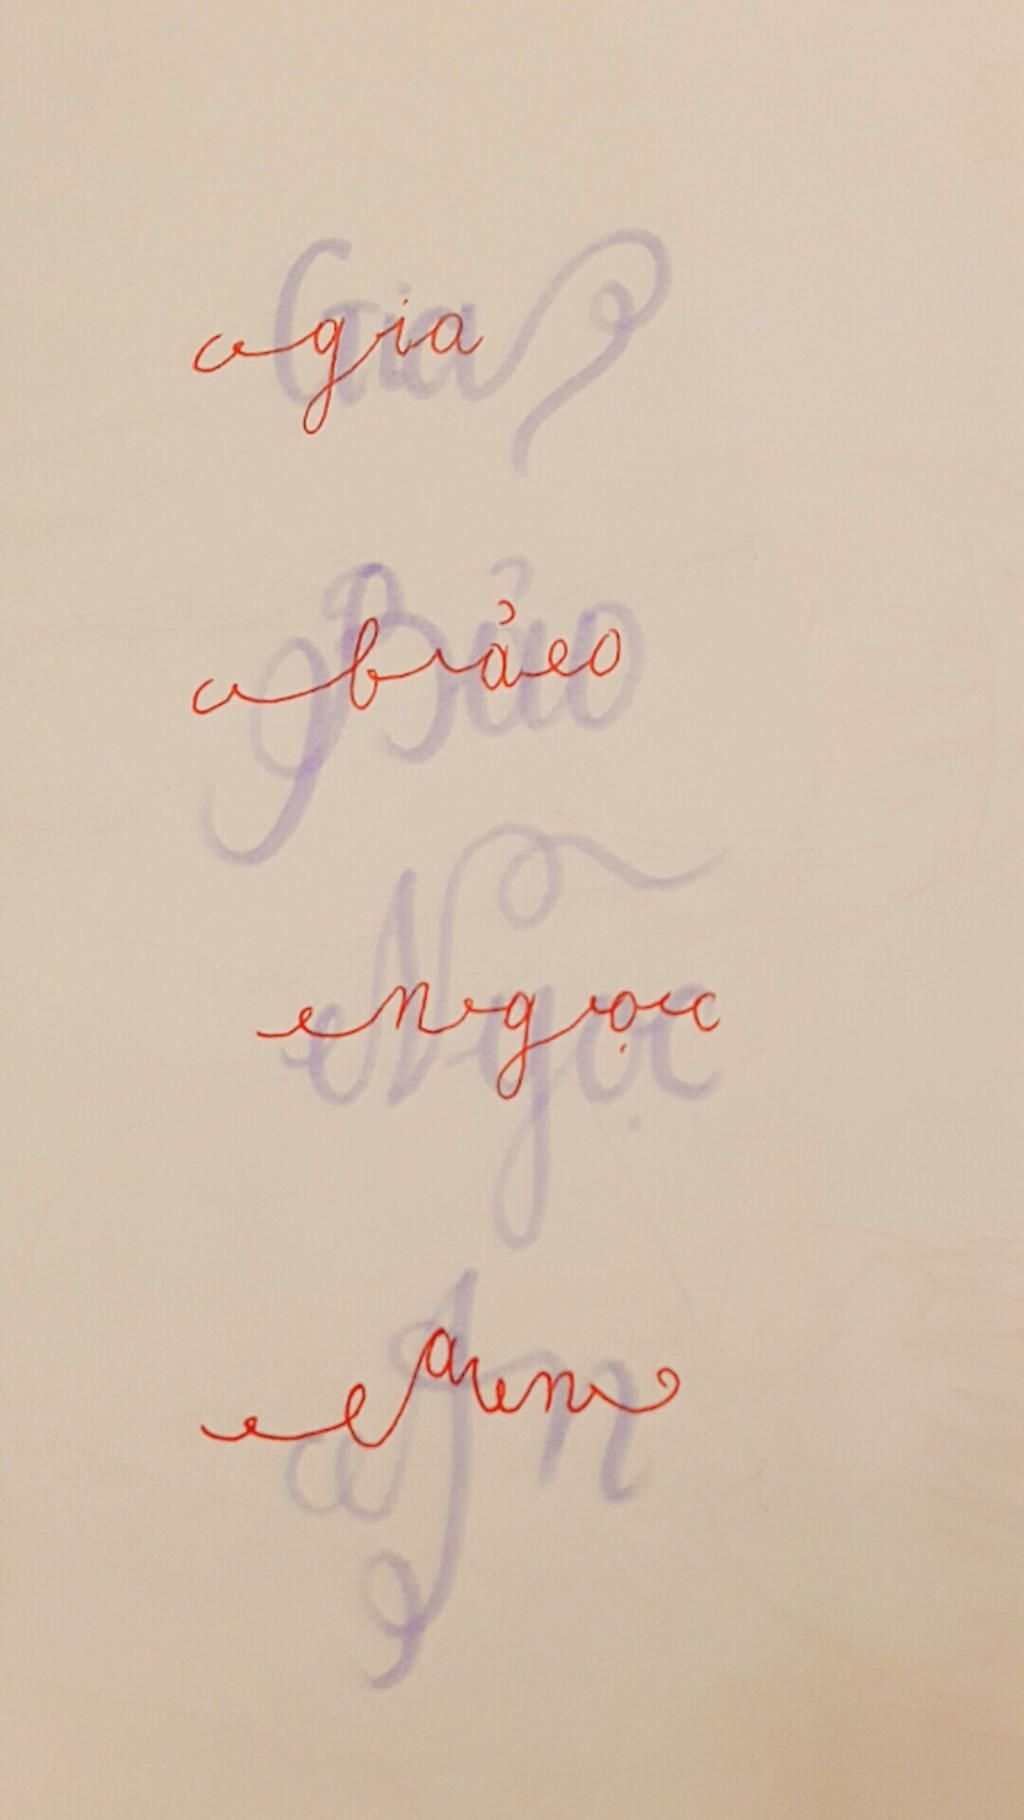 Gia
gia
Bảo
bảo
Ngọc
ngọc
An
an